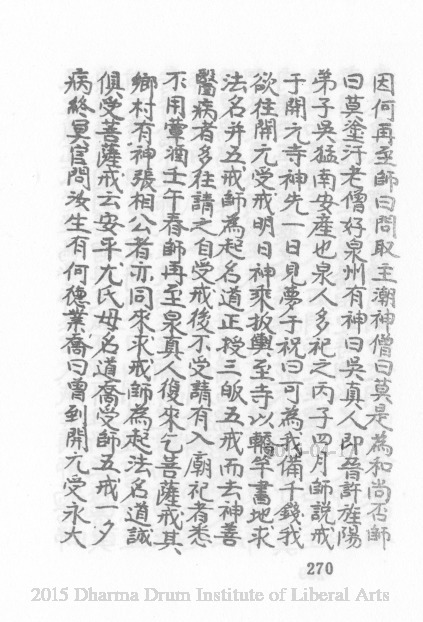 因何再至師曰問取主潮神僧曰莫是為和尚否師
曰莫塗汙老僧好泉州有神曰吳真人即晉許旌陽
弟子吳猛南安產也泉人多祀之丙子四月師說戒
于開元寺神先一日見夢于祝曰可為我備千錢我
欲往開元受戒明日神乘扳輿至寺以轎竿畫地求
法名并五戒師為起名道正授三皈五戒而去神善
醫病者多往請之自受戒後不受請有入廟祀者悉
不用葷酒壬午春師再至泉真人復來乞菩薩戒其
鄉村有神張相公者亦同來求戒師為起法名道誠
俱受菩薩戒云安平尤氏母名道喬受師五戒一夕
病終冥官問汝生有何德業喬曰曾到開元受永大
270
2015 Dharma Drum Institute of Liberal Arts